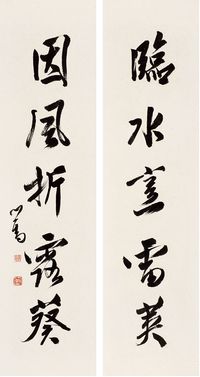 臨水雷英
因風折露葵
心畬